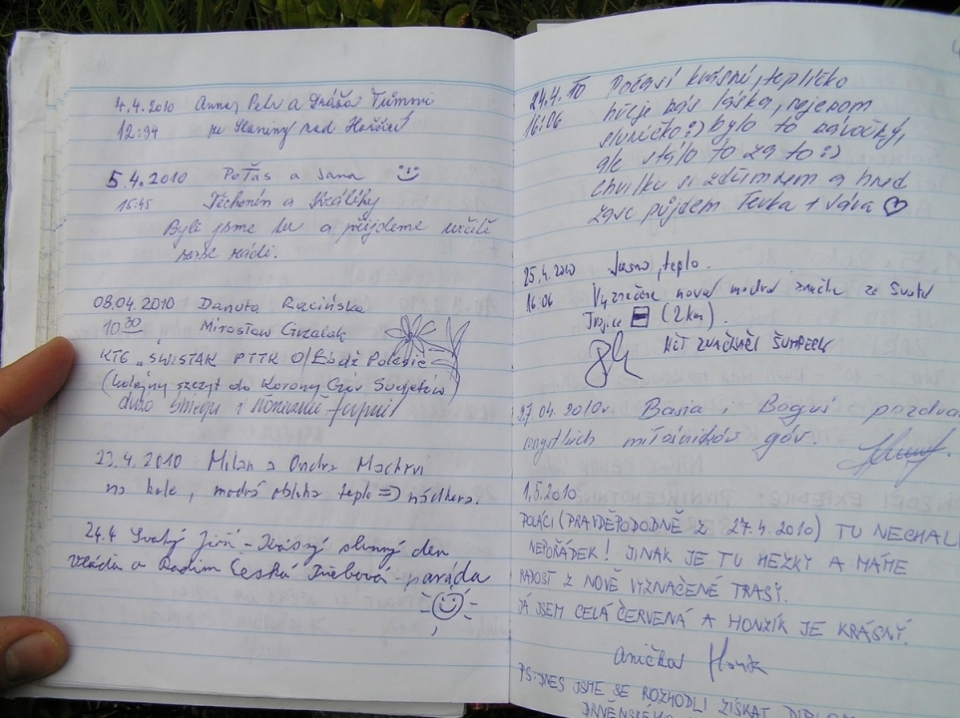 4.4.2010 Anna, Petr a
12:34 ze nad
5.4.2010 Peťas a Jana
15:45 Těchonín a Králíky
Byli jsme tu a přijdeme určitě
zase rádi.
08.04.2010 Danuta Racińska
10 30 Mirosław
KTG „ŚWISTAK" PTTK O/Łódź Polesie
(kolejny szczyt do Korony Gór Sudetów)
dużo śniegu i
23.4.2010 Milan a Ondra
na kole, modrá obloha teplo => nádhera.
24.4 Svatý Jiří - Krásný slunný den
Vláďa a Radim Česká Třebová - paráda
24.4.10 Počasí krásné, teplíčko
16:06 hřeje nás láska, nejenom
sluníčko :) bylo to náročný,
ale stálo to za to :)
chvilku si zdřímnem a hned
zase půjdem Terka + Vávra ♡
25.4.2010 Jasno, teplo.
16.06 Vyznačena nová modrá značka ze Svaté
Trojice (2 km).
KČT ZNAČKAŘI ŠUMPERK
27.04.2010r. Basia i Boguś
miłośników gór.
1.5.2010
POLÁCI (PRAVDĚPODOBNĚ Z 27.4.2010) TU NECHALI
NEPOŘÁDEK! JINAK JE TU HEZKY A MÁME
RADOST Z NOVĚ VYZNAČENÉ TRASY.
JÁ JSEM CELÁ ČERVENÁ A HONZÍK JE KRÁSNÝ.
Anička Honzík
PS: DNES JSME SE ROZHODLI ZÍSKAT DIPLOM